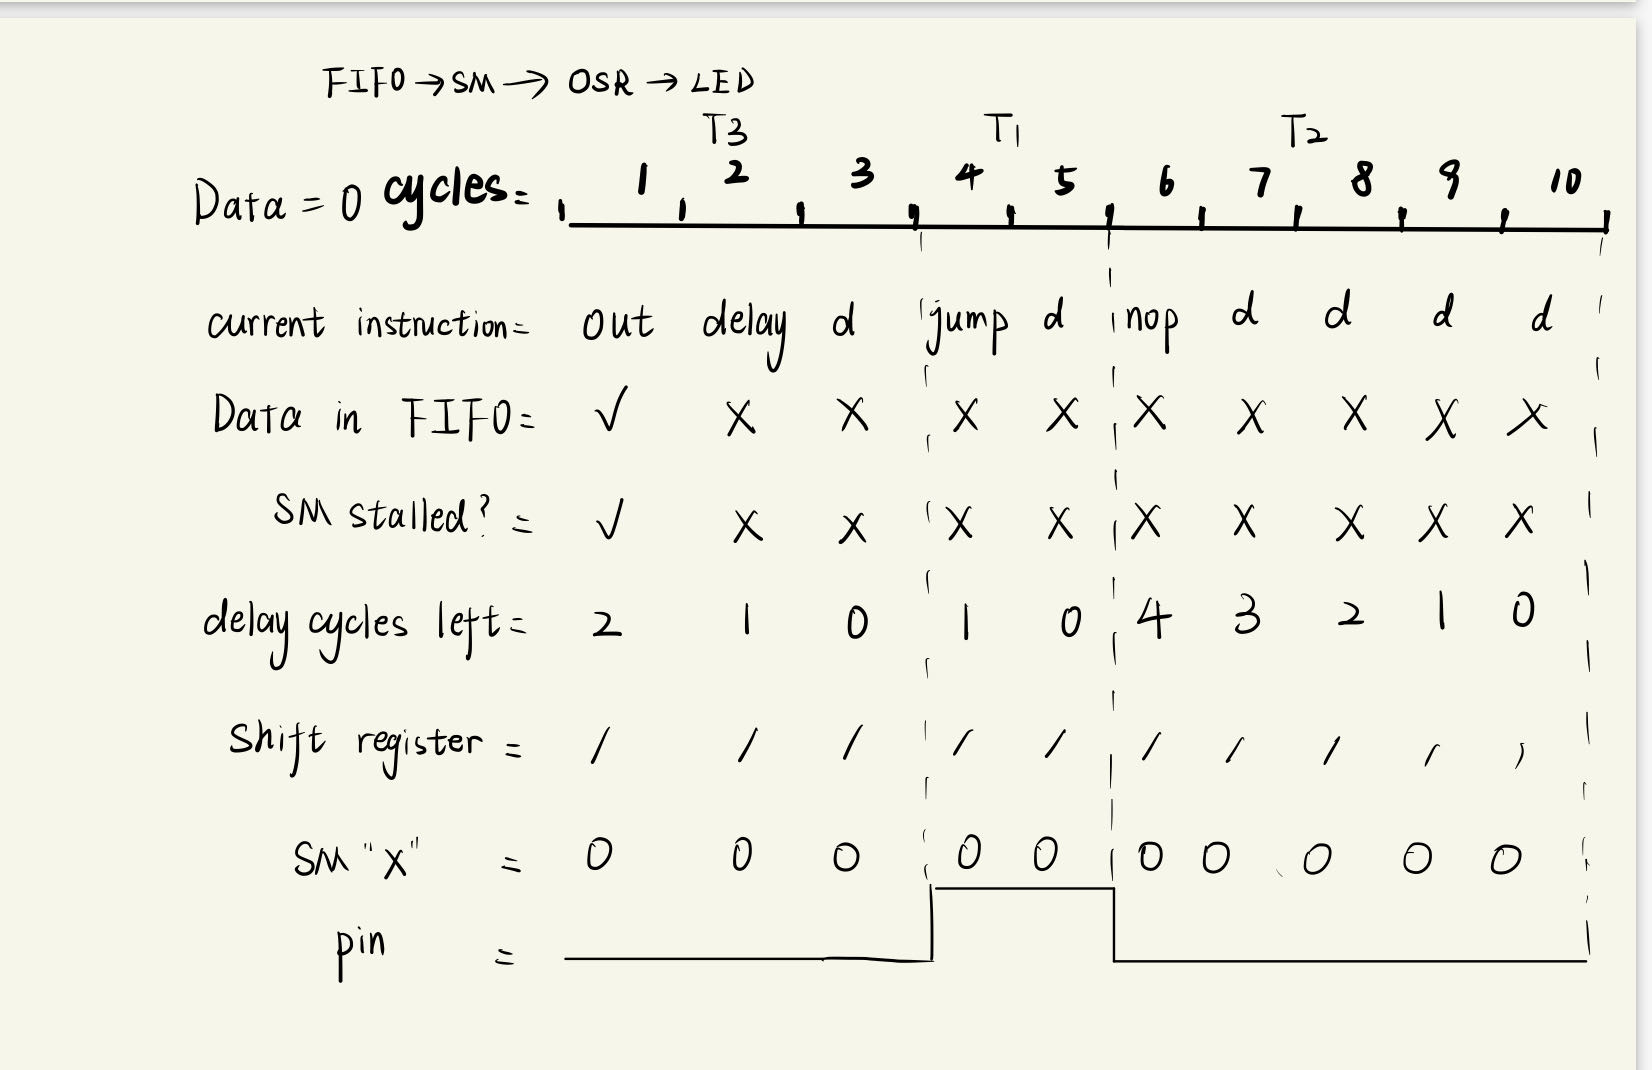 FIFO → SM → OSR → LED
T3 T1 T2
Data = 0 cycles = 1 2 3 4 5 6 7 8 9 10
current instruction = out delay d jump d nop d d d d
Data in FIFO = ✓ X X X X X X X X X
SM stalled? = ✓ X X X X X X X X X
delay cycles left = 2 1 0 1 0 4 3 2 1 0
Shift register = / / / / / / / / / /
SM "X" = 0 0 0 0 0 0 0 0 0 0
pin =